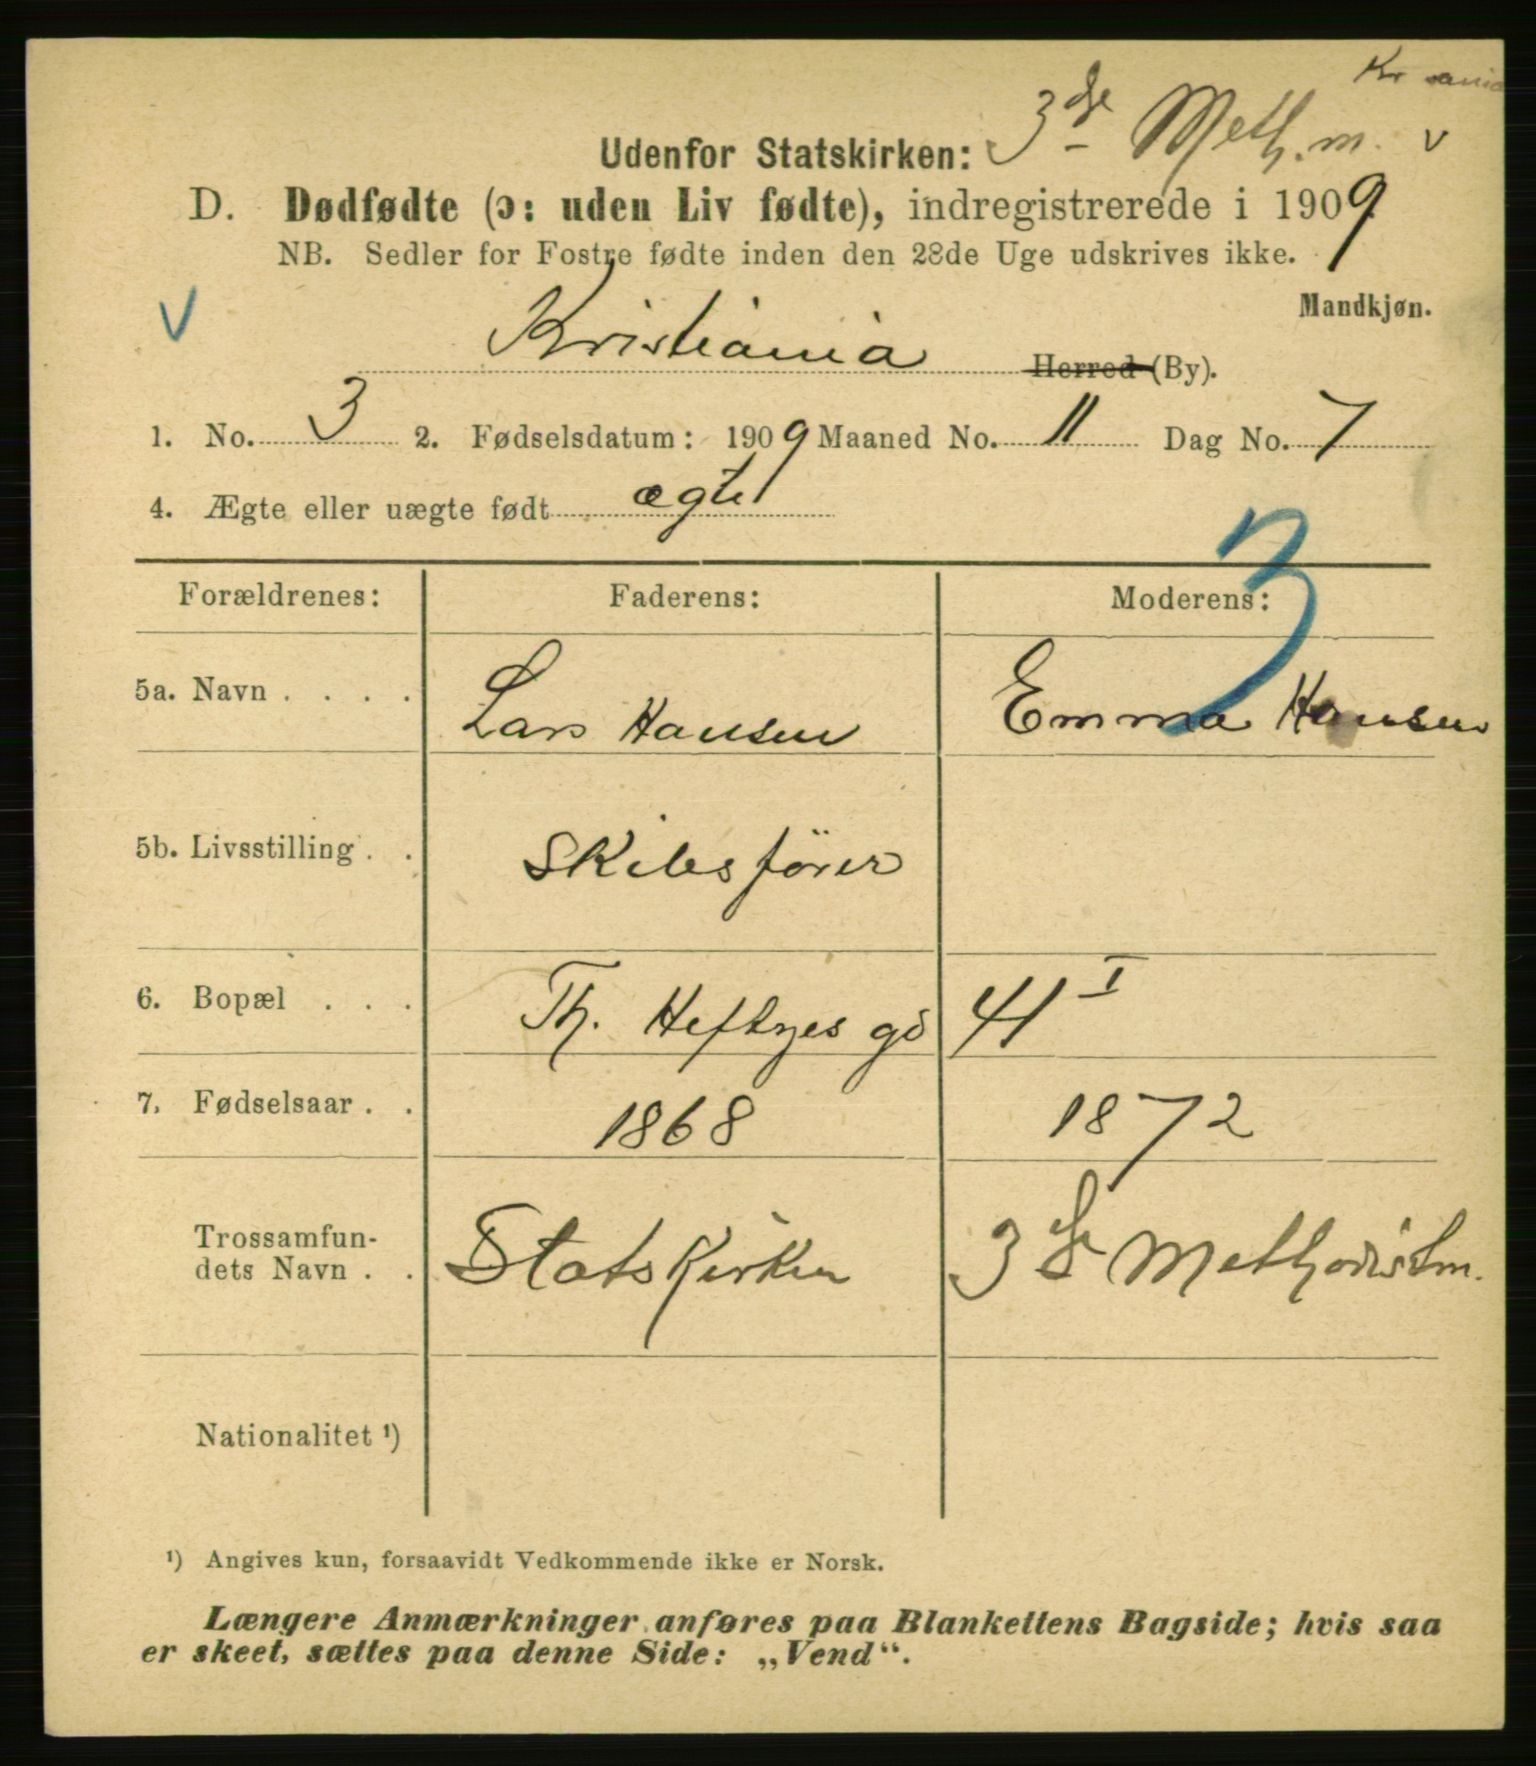 Kr ania
Udenfor Statskirken: 3dje Meth. m. v
D. Dødfødte (ɔ: uden Liv fødte), indregistrerede i 1909
NB. Sedler for Fostre fødte inden den 28de Uge udskrives ikke.
Mandkjøn.
V
Kristiania Herred (By).
1. No. 3 2. Fødselsdatum: 1909 Maaned No. 11 Dag No. 7
4. Ægte eller uægte født ægte
3
Forældrenes: Faderens: Moderens:
5a. Navn . . . . Lars Hansen Emma Hansen
5b. Livsstilling . . Skibsförer
6. Bopæl . . . Th. Heftyes gd 41 I
7. Fødselsaar . . 1868 1872
Trossamfun-
dets Navn . . Statskirken 3dje Methodistm.
Nationalitet ¹)
¹) Angives kun, forsaavidt Vedkommende ikke er Norsk.
Længere Anmærkninger anføres paa Blankettens Bagside; hvis saa
er skeet, sættes paa denne Side: „Vend“.